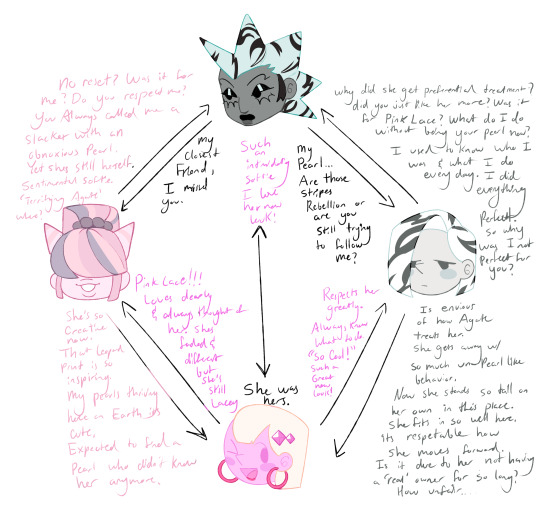 No reset? Was it for
me? Do you respect me?
You Always called me a
slacker with an
obnoxious Pearl.
Yet she's still herself.
Sentimental Softie.
'Terrifying Agate'
where?
my
closest
Friend,
I missed
you.
Such
an
intimidating
softie
I love
her new
look!
my
Pearl...
Are those
stripes
Rebellion or
are you
still trying
to follow
me?
why did she get preferential treatment?
did you just like her more? Was it
for Pink Lace? What do I do
without being your pearl now?
I used to know who I
was & what I do
every day. I did
everything
Perfect.
so why
was I not
Perfect for
you?
Pink Lace!!!
Loves dearly
& always thought of
her. she's
faded &
different
but
she's
still
Lacey
She's so
Creative
now.
That leopard
print is so
inspiring.
My pearls thriving
here on Earth its
cute,
Expected to find a
Pearl who didn't know
her anymore.
She was
hers.
Respects her
greatly.
Always knew
what to do.
"So Cool!"
such a
Great
new
look!
Is envious
of how Agate
treats her.
She gets away w/
so much un-Pearl like
behavior.
Now she stands so tall on
her own in this place.
She fits in so well here.
its respetable how
she moves forward.
Is it due to her not having
a 'real' owner for so long?
How unfair...